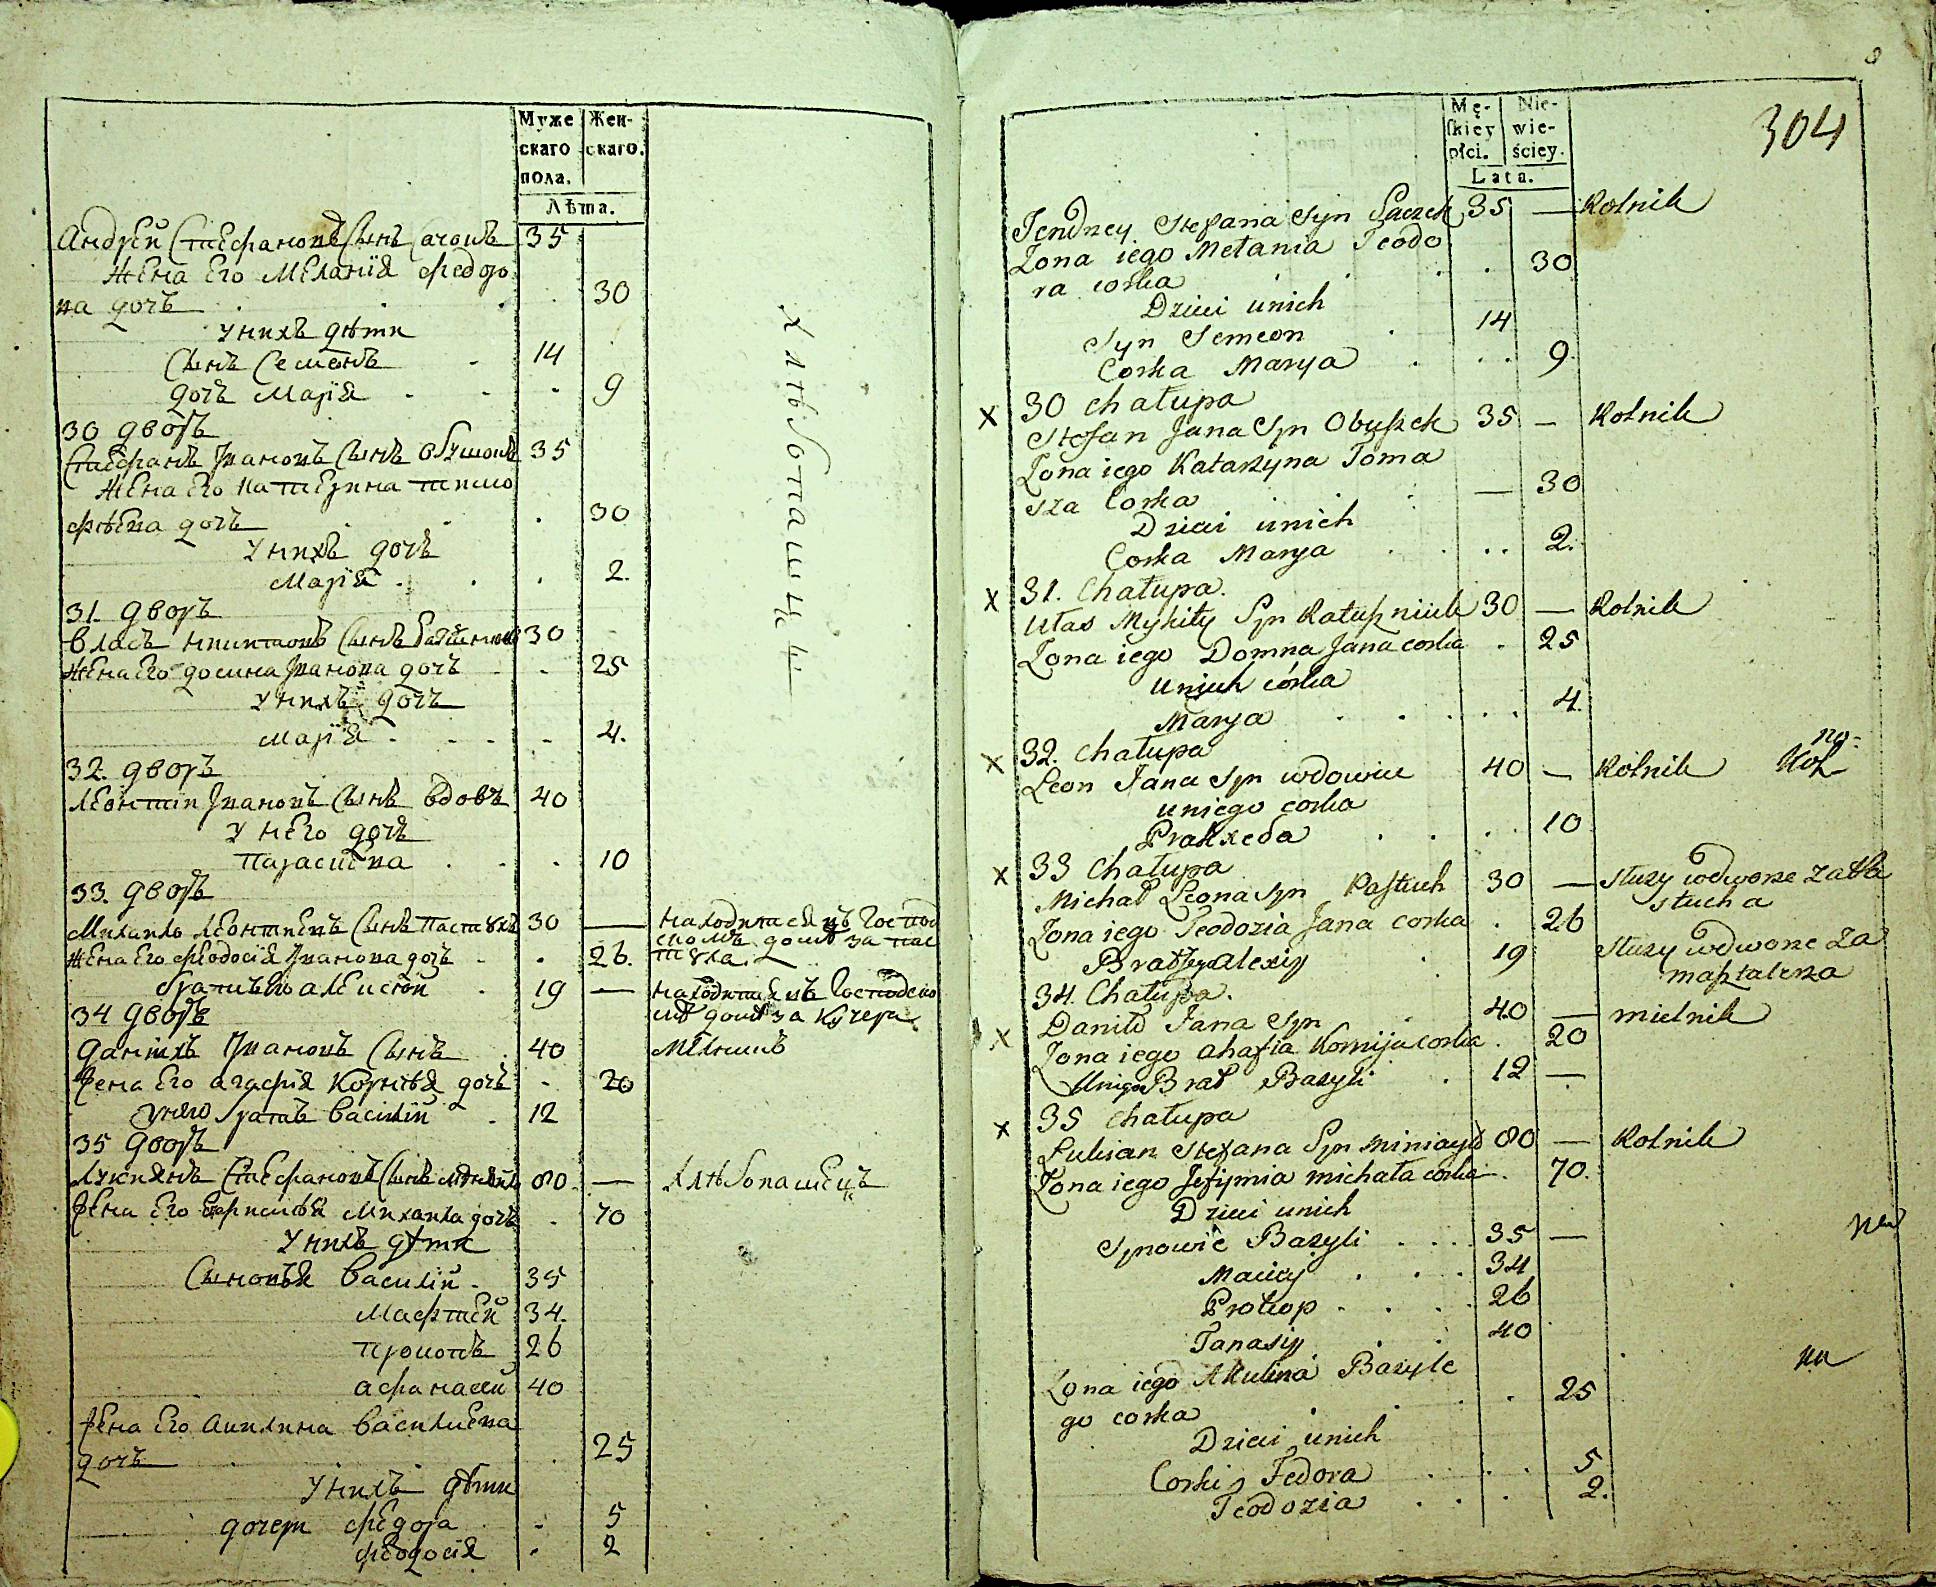 Муже
скаго
пола.
Жен-
скаго.
Лѣта.
Андрей Стефановъ Сынъ 35
Жена Его Меланія Федоро
ва дочъ 30
У нихъ дѣти
Сынъ Семенъ 14
дочъ Марія 9
30 дворъ
Стефанъ Ивановъ Сынъ 35
Жена Его Катерина Тимо
фѣева дочъ 30
У нихъ дочъ
Марія 2.
31. дворъ
Власъ Никитовъ Сынъ 30
Жена Его домна Иванова дочъ 25
У нихъ дочъ
Марія 4.
32. дворъ
Леонтій Ивановъ Сынъ вдовъ 40
У него дочъ
Параскева 10
33. дворъ
Михайло Леонтиевъ Сынъ Пастухъ 30 — находится въ Господ
скомъ домѣ за пас
Жена Его Феодосія Иванова дочъ 26. туха
братъ Его Алексій 19 — находится въ Господско
34 дворъ мъ домѣ за кучера
Данилъ Ивановъ Сынъ 40 Мелникъ
Жена Его Агафія Корнѣя дочъ 20
У него братъ Василий 12
35 дворъ
Лукиянъ Стефановъ Сынъ 80 — Хлѣбопашецъ
Жена Его Евфимія Михаила дочъ 70
У нихъ дѣти
Сыновья Василий 35
Мафтей 34.
Прокопъ 26
Афанасий 40
Жена Его Акилина Василиева
дочъ 25
У нихъ дѣти
дочери Федора 5
Феодосія 2
Хлѣбопашцѣ
304
Mę-
skiey
płci.
Nie-
wie-
ściey.
Lata.
Jendrzey Stefana Syn 35 — Rolnik
Zona iego Melania Teodo
ra corka 30
Dzieci unich
Syn Semeon 14
Corka Marya 9.
x 30 Chałupa
Stefan Jana Syn Obuszek 35 — Rolnik
Zona iego Katarzyna Toma
sza Corka — 30
Dzieci unich
Corka Marya 2.
x 31. Chałupa.
Ułas Mykity Syn Kałusznik 30 — Rolnik
Zona iego Domna Jana corka 25
Unich córka
Marya 4.
x 32. Chałupa
Leon Jana Syn wdowiec 40 — Rolnik
uniego corka
Prakxeda 10
x 33 Chałupa
Michał Leona Syn Pastuch 30 — Służy wdworze za Pa
stucha
Zona iego Teodozia Jana corka 26
Brat Jego Alexiy 19 Służy wdworze za
masztalerza
34. Chałupa.
x Daniło Jana Syn 40 — mielnik
Zona iego Ahafia Kornija corka 20
Uniego Brat Bazyli 12 —
x 35 Chałupa
Lukian Stefana Syn 80 — Rolnik
Zona iego Jefymia michała corka 70.
Dzieci unich
Synowie Bazyli 35 —
Maciey 34
Prokop 26
Tanasiy 40
Zona iego Akulina Bazyle
go corka 25
Dzieci unich
Corki Fedora 5
Teodozia 2.